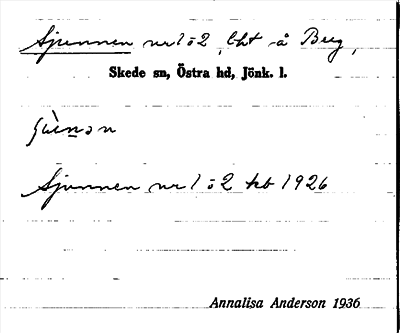 Sjunnen nr 1 o 2, lht å Berg,
Skede sn, Östra hd, Jönk. l.
Sjunnen nr 1 o 2 kb 1926
Annalisa Anderson 1936